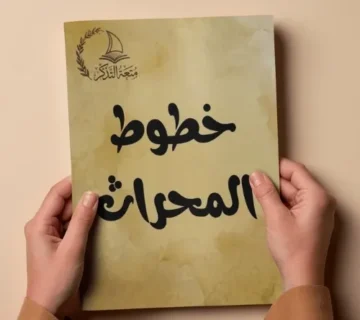 متعة التذكر
خطوط
المحراث